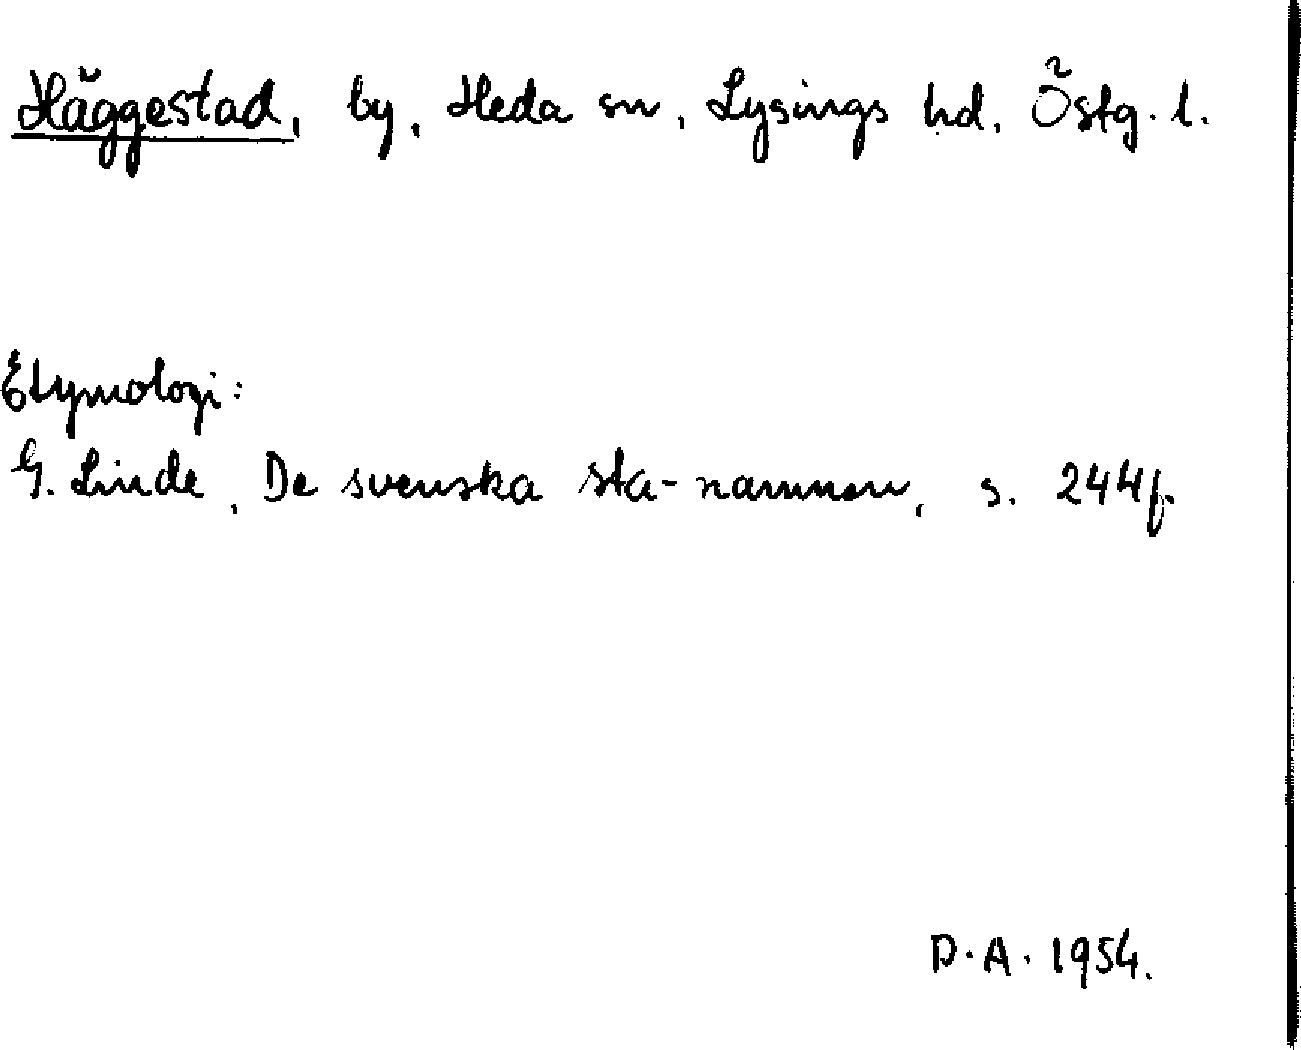 Häggestad, by, Heda sn, Lysings hd. Östg. l.
Etymologi:
G. Linde, De svenska sta-namnen, s. 244f.
D.A. 1954.